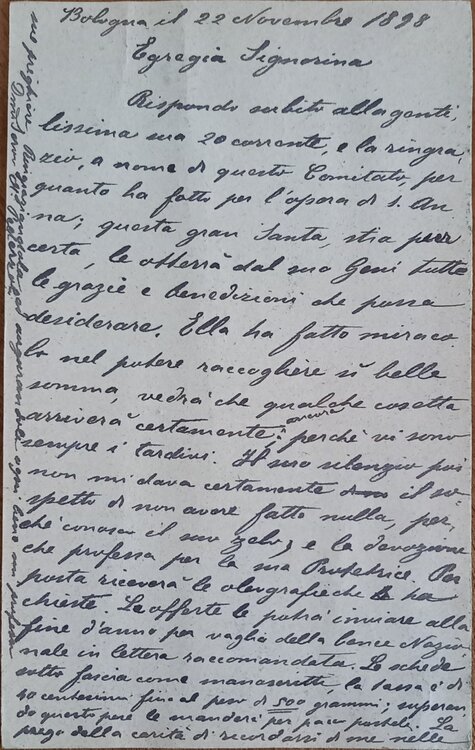 Bologna il 22 Novembre 1898
Egregia Signorina
Rispondo subito alla genti,
lissima sua 20 corrente, e la ringra,
zio, a nome di questo Comitato, per
quanto ha fatto per l'opera di S. An
na; questa gran Santa, stia pur
certa, le otterrà dal suo Gesù tutte
le grazie e benedizioni che possa
desiderare. Ella ha fatto miraco
lo nel potere raccogliere sì belle
somma, vedrà che qualche cosetta
arriverà certamente ancora perchè vi sono
sempre i tardivi. Il suo silenzio poi
non mi dava certamente il so,
spetto di non avere fatto nulla, per,
chè conosco il suo zelo, e la devozione
che professa per la sua Protetrice. Per
posta riceverà le oleografie che ha
chieste. Le offerte le potrà inviare alla
fine d'anno per vaglia della Banca Nazio
nale in lettera raccomandata. Le schede
sotto fascia come manoscritti, la tassa è di
40 centesimi fino al peso di 500 grammi; superan
do questo peso le manderà per pacco postale. La
prego della carità di ricordarsi di me nelle
sue preghiere. ed augurandole ogni bene mi